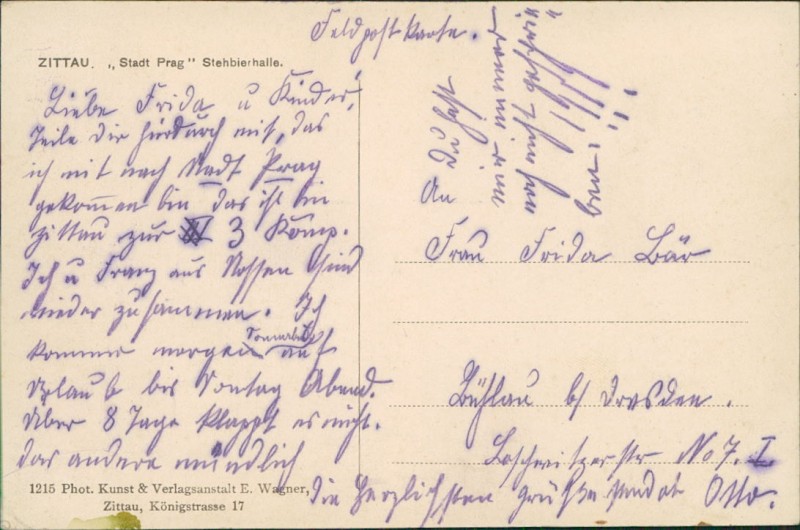 Feldpostkarte.
ZITTAU. „Stadt Prag" Stehbierhalle.
Liebe Frida u Kinder,
Teile dir hirdurch mit, das
ich mit nach Stadt Prag
gekommen bin das ist in
Zittau zur 3 Komp.
Ich u Franz aus Nossen sind
wieder zusammen. Ich
komme morgen Sonnabend auf
Urlaub bis Sontag Abend.
Über 8 Tage klappt es nicht.
das andere mündlich
die Herzlichsten Grüße sendet Otto.
Du hast
mir immer
noch nicht geschrie
ben!!!
An
Frau Frida Bär
Bühlau b/ Dresden.
Loschwitzerstr No 7. I
1215 Phot. Kunst & Verlagsanstalt E. Wagner,
Zittau, Königstrasse 17